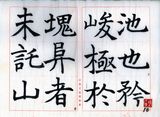 池也矜
峻極於
塊异者
未託山